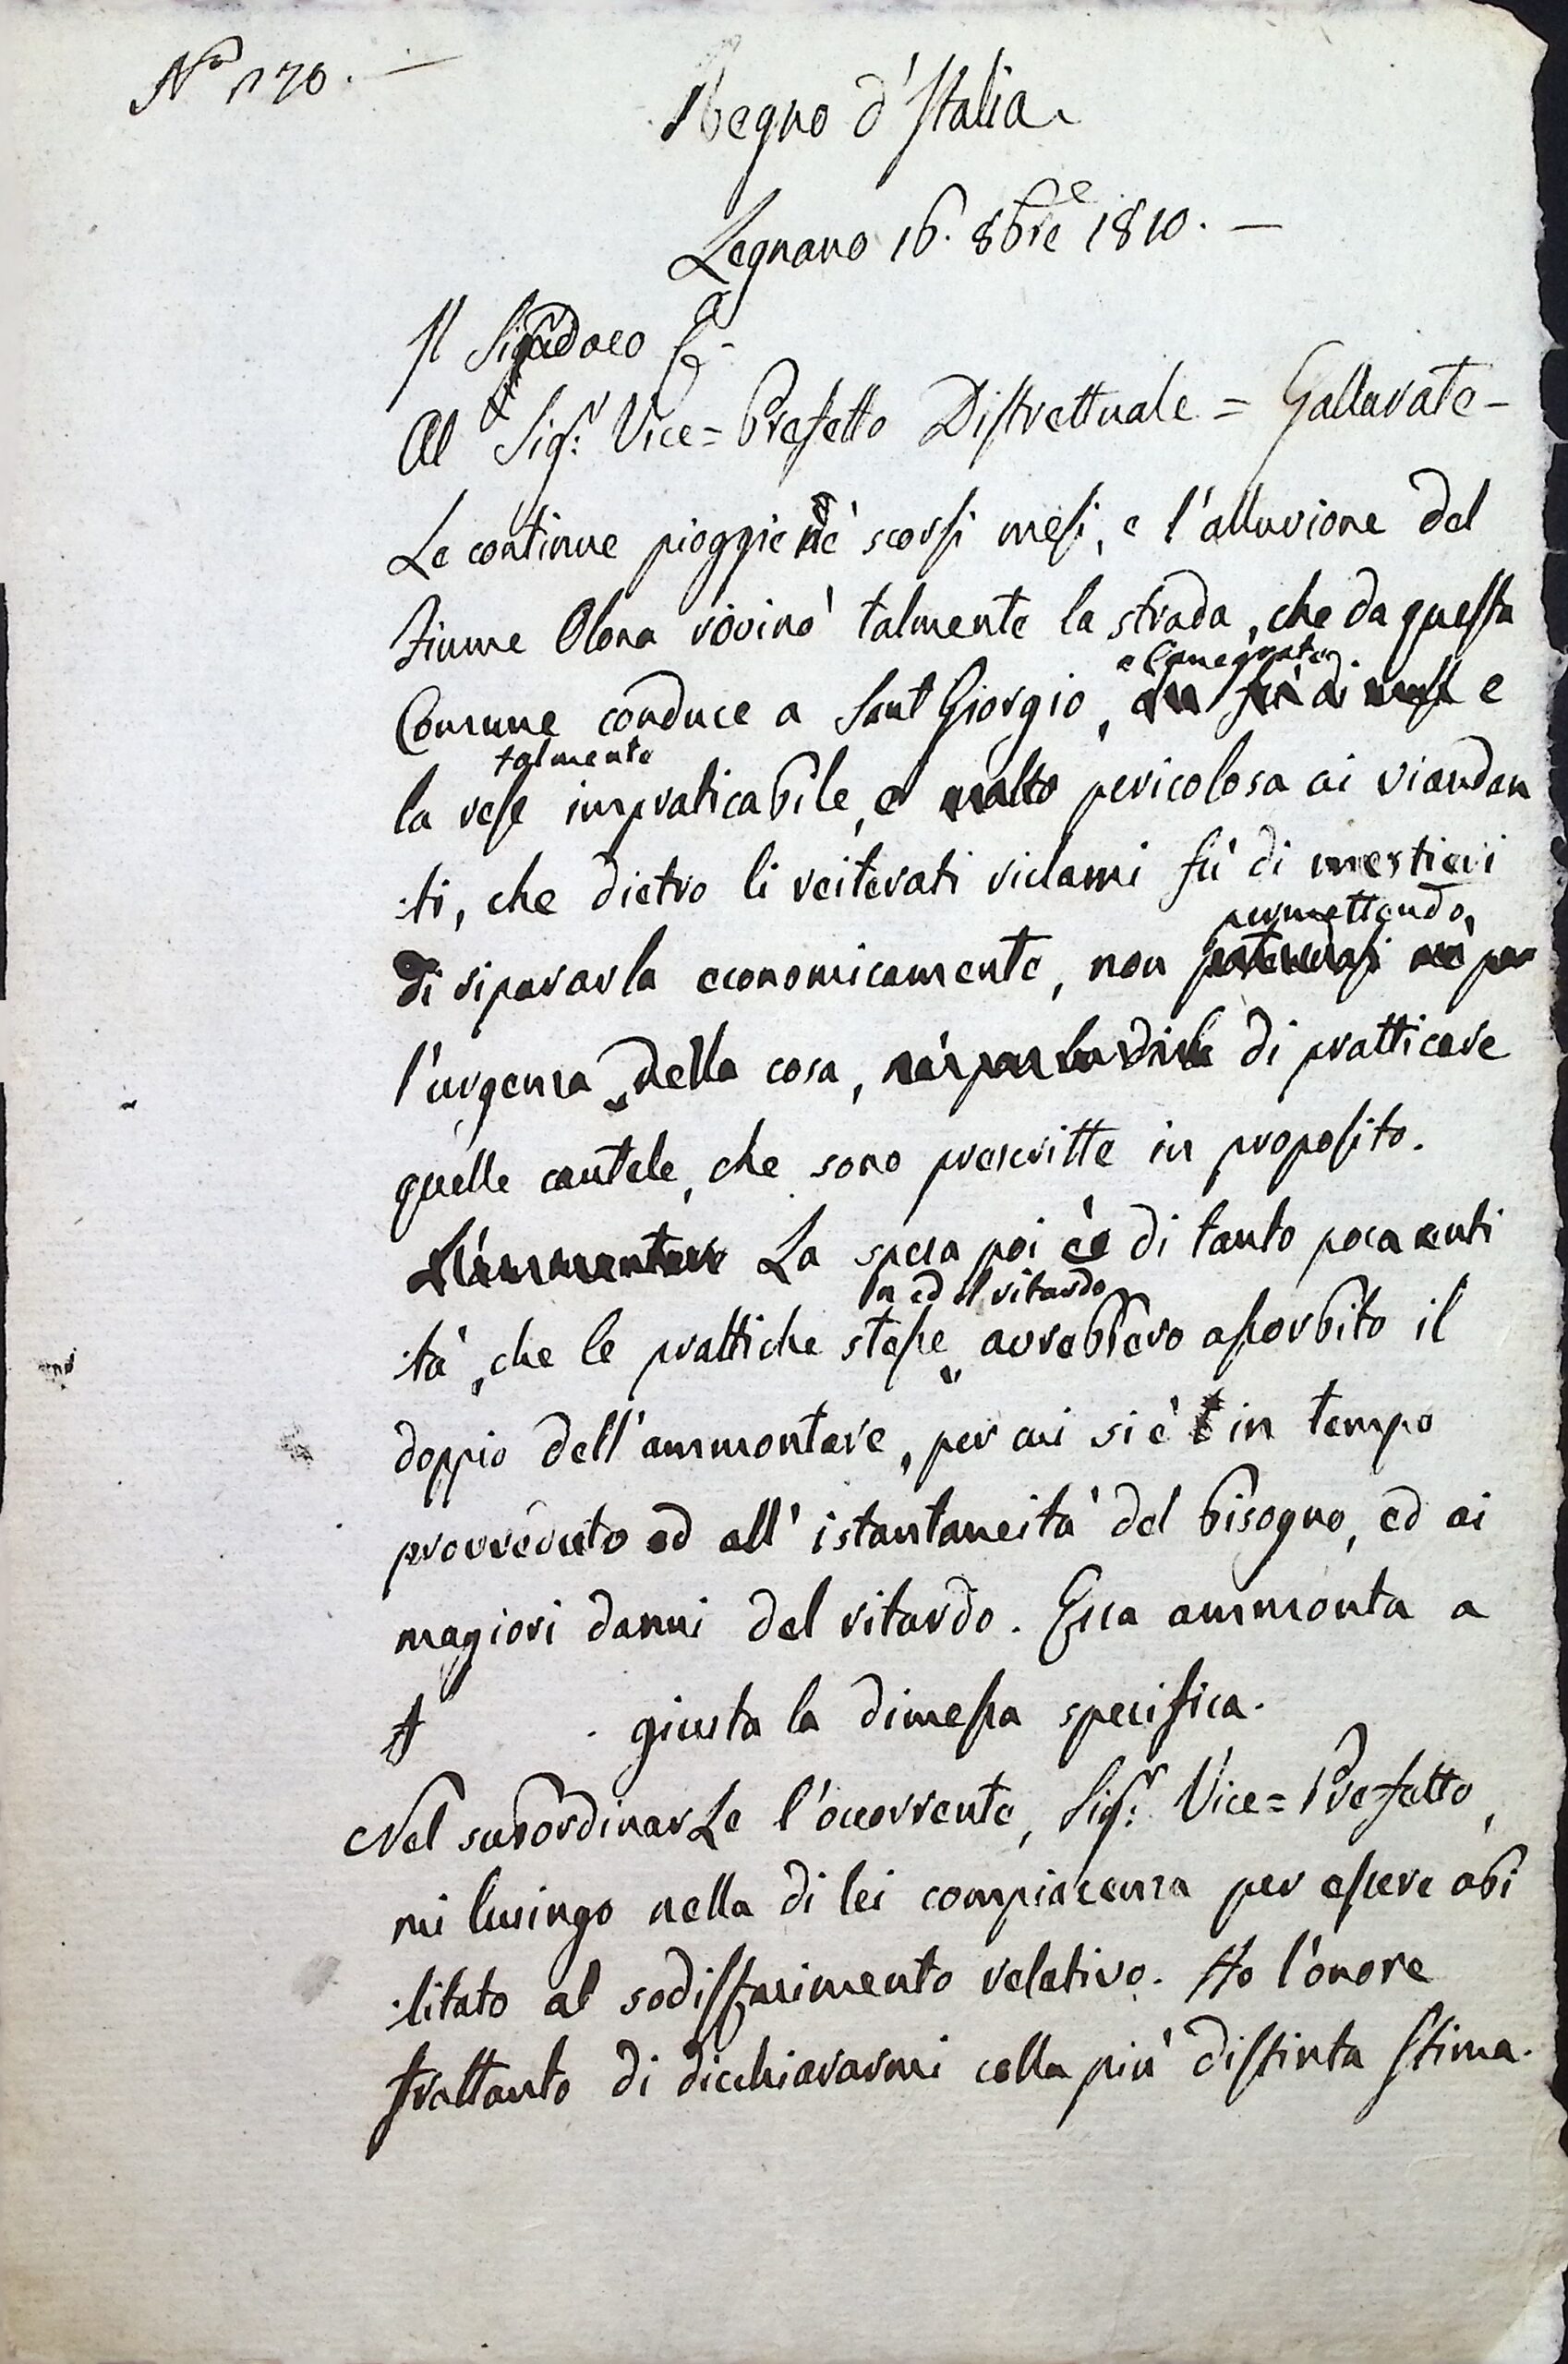 N.o 1170. —
Regno d'Italia.
Legnano 16. 8bre 1810. —
Il Sindaco
Al Sigr. Vice=Prefetto Distrettuale = Gallarate -
Le continue pioggie de' scorsi mesi, e l'alluvione del
Fiume Olona rovinò talmente la strada, che da questa
e Canegrate
Comune conduce a Sant Giorgio, e
talmente
la rese impraticabile, e molto pericolosa ai viandan
:ti, che dietro li reiterati riclami fù di mestieri
permettendo,
di ripararla economicamente, non
l'urgenza della cosa, di pratticare
quelle cautele, che sono prescritte in proposito.
L'ammontare La spesa poi è di tanto poca enti
:tà, che le prattiche stesse avrebbero assorbito il
ed il ritardo
doppio dell'ammontare, per cui si è in tempo
provveduto ed all'istantaneità del bisogno, ed ai
magiori danni del ritardo. Essa ammonta a
giusta la dimessa specifica.
Nel subordinarLe l'occorrente, Sigr. Vice=Prefetto,
mi lusingo nella di lei compiacenza per essere abi
:litato al sodisfacimento relativo. Ho l'onore
frattanto di dicchiararmi colla più distinta stima.